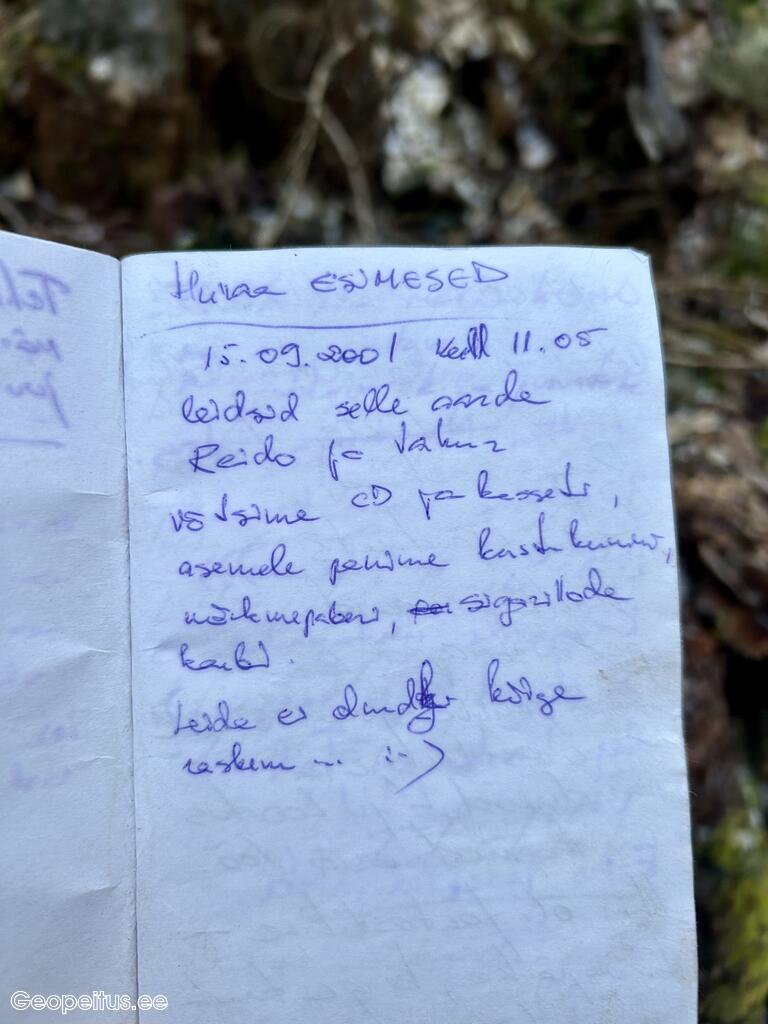 Hurraa ESIMESED
15.09.2001 kell 11.05
leidsid selle aarde
Reido ja
võtsime CD ja kasseti,
asemele panime kustukummi,
märkmepaberi, sigarillode
karbi.
Leida ei olnud kõige
raskem ... :-)
Geopeitus.ee